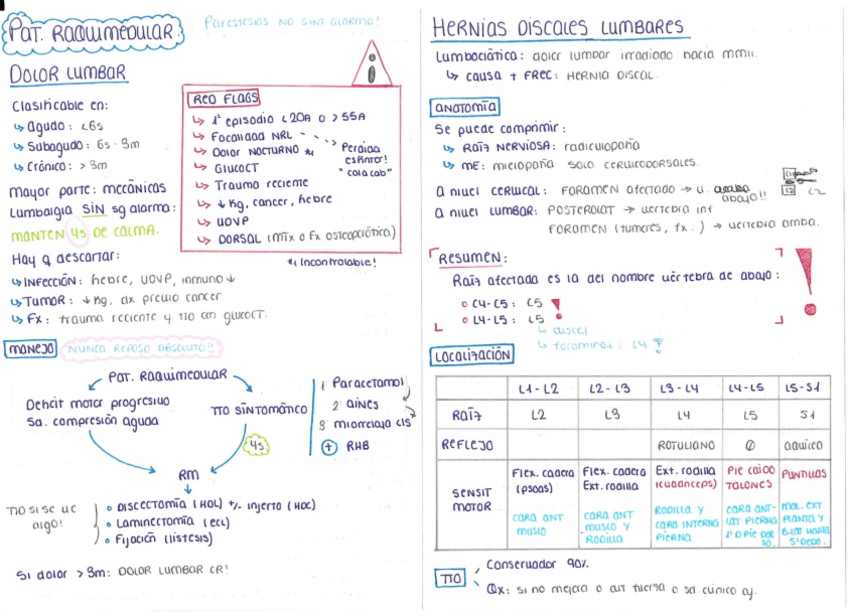 PAT. RAQUIMEDULAR.
PARESTESIAS NO SINT ALARMA!
DOLOR LUMBAR
Clasificable en:
↳ Agudo: <6s
↳ Subagudo: 6s-3m
↳ Crónico: >3m
Mayor parte: mecánicas
Lumbalgia SIN sg alarma:
MANTEN 4s DE CALMA.
Hay q descartar:
↳ INFECCIÓN: fiebre, UDVP, inmuno↓
↳ TUMOR: ↓Kg, dx previo cancer
↳ FX: trauma reciente y TTO con glucoct.
RED FLAGS
↳ 1º episodio <20A o >55A
↳ Focalidad NRL
↳ Dolor NOCTURNO *1
Perdida esfínter!
"cola cab"
↳ GLUCOCT
↳ Trauma reciente
↳ ↓Kg, cancer, fiebre
↳ UDVP
↳ DORSAL (MTX o Fx osteoporótica)
*1 Incontrolable!
MANEJO
NUNCA REPOSO ABSOLUTO!!
PAT. RAQUIMEDULAR
Déficit motor progresivo
Sd. compresión aguda
TTO SINTOMÁTICO
4s
1 Paracetamol
2 AINES
3 miorrelaj
+ RHB
RM
TTO si se ve algo!
• DISCECTOMÍA (HDL) +/- injerto (HDC)
• Laminectomía (ECL)
• Fijación (listesis)
Si dolor >3m: DOLOR LUMBAR CR!
HERNIAS DISCALES LUMBARES
Lumbociática: dolor lumbar irradiado hacia MMII.
↳ causa + FREC: HERNIA DISCAL.
ANATOMÍA
Se puede comprimir:
↳ RAÍZ NERVIOSA: radiculopatía
↳ ME: mielopatía SOLO CERVICODORSALES.
A nivel CERVICAL: FORAMEN afectado → v. abajo!!
C2
A nivel LUMBAR: POSTEROLAT → vertebra inf
FORAMEN (tumores, fx..) → vertebra arriba.
RESUMEN:
Raíz afectada es la del nombre vértebra de abajo:
• C4-C5: C5
• L4-L5: L5
↳ discal
↳ foraminal: L4
LOCALIZACIÓN
L1-L2 L2-L3 L3-L4 L4-L5 L5-S1
RAÍZ L2 L3 L4 L5 S1
REFLEJO ROTULIANO ∅ AQUÍLEO
SENSIT MOTOR
Flex. cadera (psoas)
CARA ANT MUSLO
Flex. cadera Ext. rodilla
CARA ANT MUSLO Y RODILLA
Ext. rodilla (cuádriceps)
RODILLA Y CARA INTERNA PIERNA
PIE CAÍDO TALONES
CARA ANT-LAT PIERNA
PUNTILLAS
MAL. EXT PLANTA Y
5º DEDO.
TTO
Conservador 90%
Qx: si no mejora o alt fuerza o sd. clínico